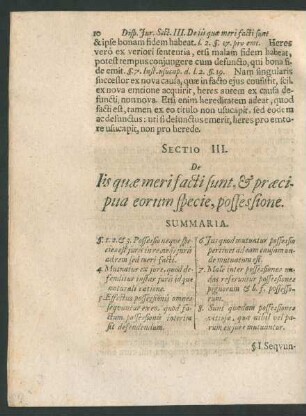 10 Disp. Jur. Sect. III. De iis quæ meri facti sunt
& ipse bonam fidem habeat. l. 2. §. 17. pro emt. Heres
verò ex veriori sententia, etsi malam fidem habeat,
potest tempus conjungere cum defuncto, qui bona fi-
de emit. §. 7. Inst. usucap. d. l. 2. §. 19. Nam singularis
successor ex nova causa, quæ in facto ejus consistit, scil.
ex nova emtione acquirit, heres autem ex causa de-
functi, non nova. Etsi enim hereditatem adeat, quod
facti est, tamen ex eo titulo non usucapit, sed eodem
ac defunctus: uti si defunctus emerit, heres pro emto-
re usucapit, non pro herede.
SECTIO III.
De
Iis quæ meri facti sunt, & præci-
pua eorum specie, possessione.
SUMMARIA.
§. 1. 2. & 3. Possessio neque spe-
cie est juris in re aut juris
ad rem sed meri facti.
4 Mutuatur ex jure, quod de-
fenditur instar juris idque
naturali ratione.
5 Effectus possessionis omnes
sequuntur eam, quod fa-
ctum possessionis interim
sit defendendum.
6 Jus quod mutuatur possessio
pertinet ad eam causam un-
de mutuatum est.
7 Male inter possessiones nu-
das referuntur possessiones
pignorum & b. f. possesso-
rum.
8 Sunt quædam possessiones
antiquæ, quæ nihil vel pa-
rum ex jure mutuantur.
§ I. Sequun-